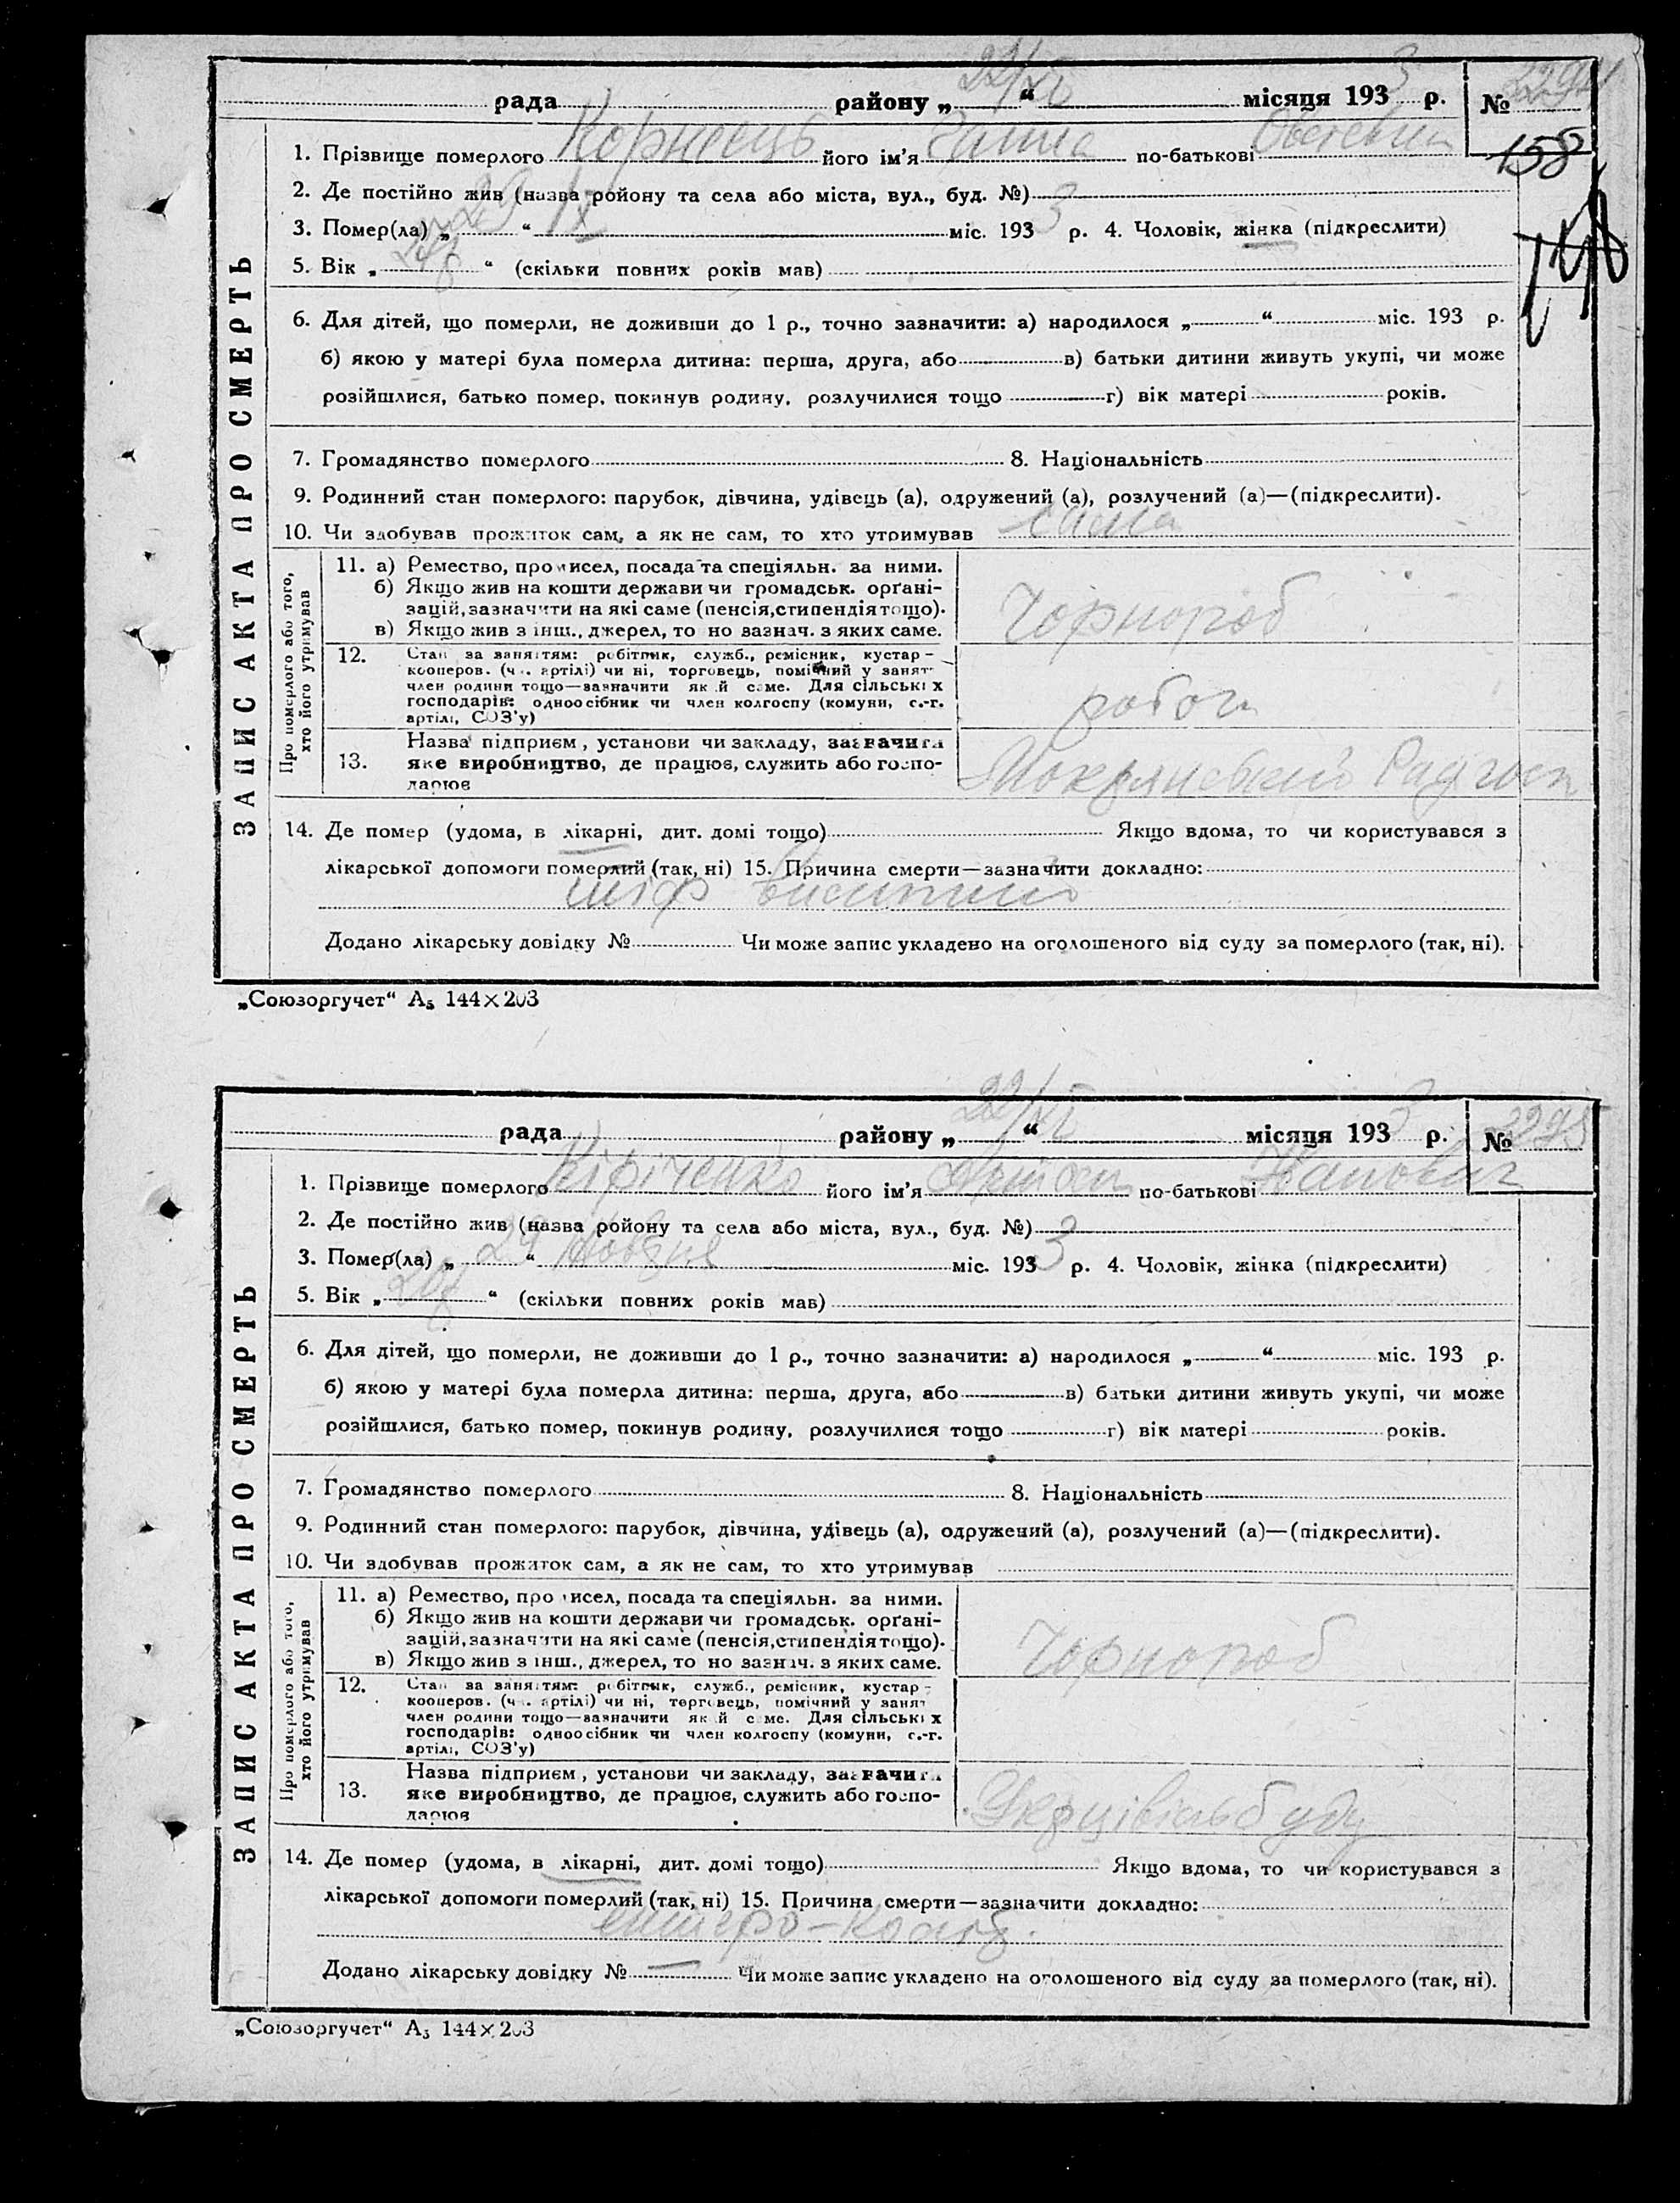 22/XI 3 2294
рада району „ “ місяця 193 р. №
158
1. Прізвище померлого Корнієць його ім'я Ганна по-батькові
2. Де постійно жив (назва ройону та села або міста, вул., буд. №)
3. Помер(ла) „ 29 “ ІХ міс. 193 3 р. 4. Чоловік, жінка (підкреслити)
5. Вік „ “ (скільки повних років мав)
6. Для дітей, що померли, не доживши до 1 р., точно зазначити: а) народилося „ “ міс. 193 р.
б) якою у матері була померла дитина: перша, друга, або в) батьки дитини живуть укупі, чи може
розійшлися, батько помер, покинув родину, розлучилися тощо г) вік матері років.
7. Громадянство померлого 8. Національність
9. Родинний стан померлого: парубок, дівчина, удівець (а), одружений (а), розлучений (а)—(підкреслити).
10. Чи здобував прожиток сам, а як не сам, то хто утримував сама
ЗАПИС АКТА ПРО СМЕРТЬ
Про померлого або того, хто його утримував
11. а) Ремество, промисел, посада та спеціяльн. за ними.
б) Якщо жив на кошти держави чи громадськ. орґані-
зацій, зазначити на які саме (пенсія, стипендія тощо).
в) Якщо жив з інш., джерел, то но зазнач. з яких саме.
Чорнороб
12. Стан за заняттям: робітник, служб., ремісник, кустар-
кооперов. (чл. артілі) чи ні, торговець, помічний у занят
член родини тощо—зазначити який саме. Для сільських
господарів: одноосібник чи член колгоспу (комуни, с.-г.
артілі, СОЗ'у)
робоч
13. Назва підприєм, установи чи закладу, зазначити
яке виробництво, де працює, служить або госпо-
дарює
Радгосп
14. Де помер (удома, в лікарні, дит. домі тощо) Якщо вдома, то чи користувався з
лікарської допомоги померлий (так, ні) 15. Причина смерти—зазначити докладно:
тіф
Додано лікарську довідку № Чи може запис укладено на оголошеного від суду за померлого (так, ні).
„Союзоргучет“ А₅ 144×203
22/XI 3 2295
рада району „ “ місяця 193 р. №
1. Прізвище померлого Кіріченко його ім'я по-батькові Іванович
2. Де постійно жив (назва ройону та села або міста, вул., буд. №)
3. Помер(ла) „ 29 “ Жовтня міс. 193 3 р. 4. Чоловік, жінка (підкреслити)
5. Вік „ “ (скільки повних років мав)
6. Для дітей, що померли, не доживши до 1 р., точно зазначити: а) народилося „ “ міс. 193 р.
б) якою у матері була померла дитина: перша, друга, або в) батьки дитини живуть укупі, чи може
розійшлися, батько помер, покинув родину, розлучилися тощо г) вік матері років.
7. Громадянство померлого 8. Національність
9. Родинний стан померлого: парубок, дівчина, удівець (а), одружений (а), розлучений (а)—(підкреслити).
10. Чи здобував прожиток сам, а як не сам, то хто утримував
ЗАПИС АКТА ПРО СМЕРТЬ
Про померлого або того, хто його утримував
11. а) Ремество, промисел, посада та спеціяльн. за ними.
б) Якщо жив на кошти держави чи громадськ. орґані-
зацій, зазначити на які саме (пенсія, стипендія тощо).
в) Якщо жив з інш., джерел, то но зазнач. з яких саме.
Чорнороб
12. Стан за заняттям: робітник, служб., ремісник, кустар-
кооперов. (чл. артілі) чи ні, торговець, помічний у занят
член родини тощо—зазначити який саме. Для сільських
господарів: одноосібник чи член колгоспу (комуни, с.-г.
артілі, СОЗ'у)
13. Назва підприєм, установи чи закладу, зазначити
яке виробництво, де працює, служить або госпо-
дарює
Укрцівільбуду
14. Де помер (удома, в лікарні, дит. домі тощо) Якщо вдома, то чи користувався з
лікарської допомоги померлий (так, ні) 15. Причина смерти—зазначити докладно:
ентеро-коліт
Додано лікарську довідку № — Чи може запис укладено на оголошеного від суду за померлого (так, ні).
„Союзоргучет“ А₅ 144×203